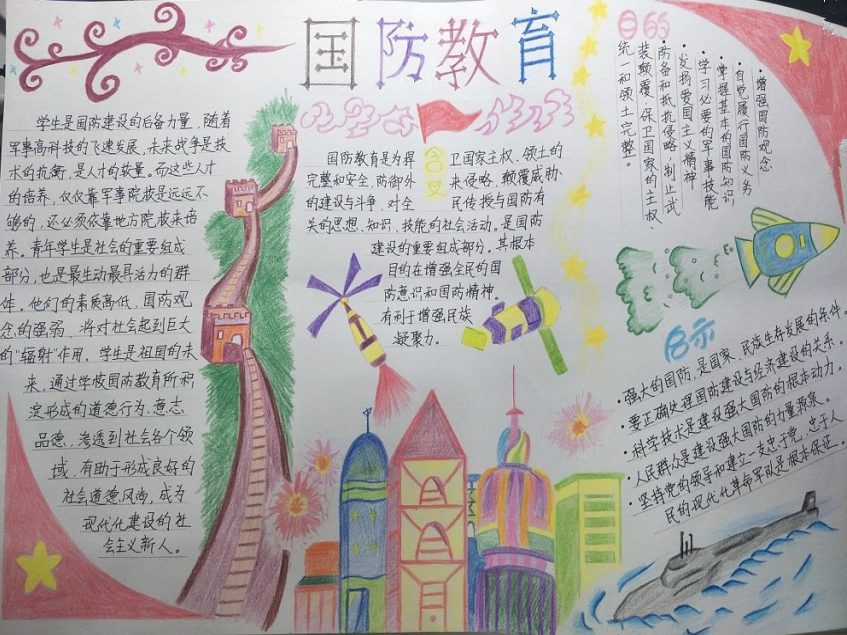 国防教育
学生是国防建设的后备力量，随着
军事高科技的飞速发展，未来战争是技
术的抗衡，是人才的较量。而这些人才
的培养，仅仅靠军事院校是远远不
够的，还必须依靠地方院校来培
养。青年学生是社会的重要组成
部分，也是最生动最具活力的群
体。他们的素质高低，国防观
念的强弱，将对社会起到巨大
的"辐射"作用。学生是祖国的未
来，通过学校国防教育所积
淀形成的道德行为、意志
品德，渗透到社会各个领
域，有助于形成良好的
社会道德风尚，成为
现代化建设的社
会主义新人。
含义
国防教育是为捍卫国家主权、领土的
完整和安全，防御外来侵略、颠覆威胁、
的建设与斗争，对全民传授与国防有
关的思想、知识、技能的社会活动。是国防
建设的重要组成部分，其根本
目的在增强全民的国
防意识和国防精神。
有利于增强民族
凝聚力。
目的
·增强国防观念
·自觉履行国防义务
·掌握基本的国防知识
·学习必要的军事技能
·发扬爱国主义精神
·防备和抵抗侵略，制止武
装颠覆，保卫国家的主权、
统一和领土完整。
启示
·强大的国防，是国家、民族生存发展的条件。
·要正确处理国防建设与经济建设的关系。
·科学技术是建设强大国防的根本动力。
·人民群众是建设强大国防的力量源泉。
·坚持党的领导和建立一支忠于党、忠于人
民的现代化革命军队是根本保证。